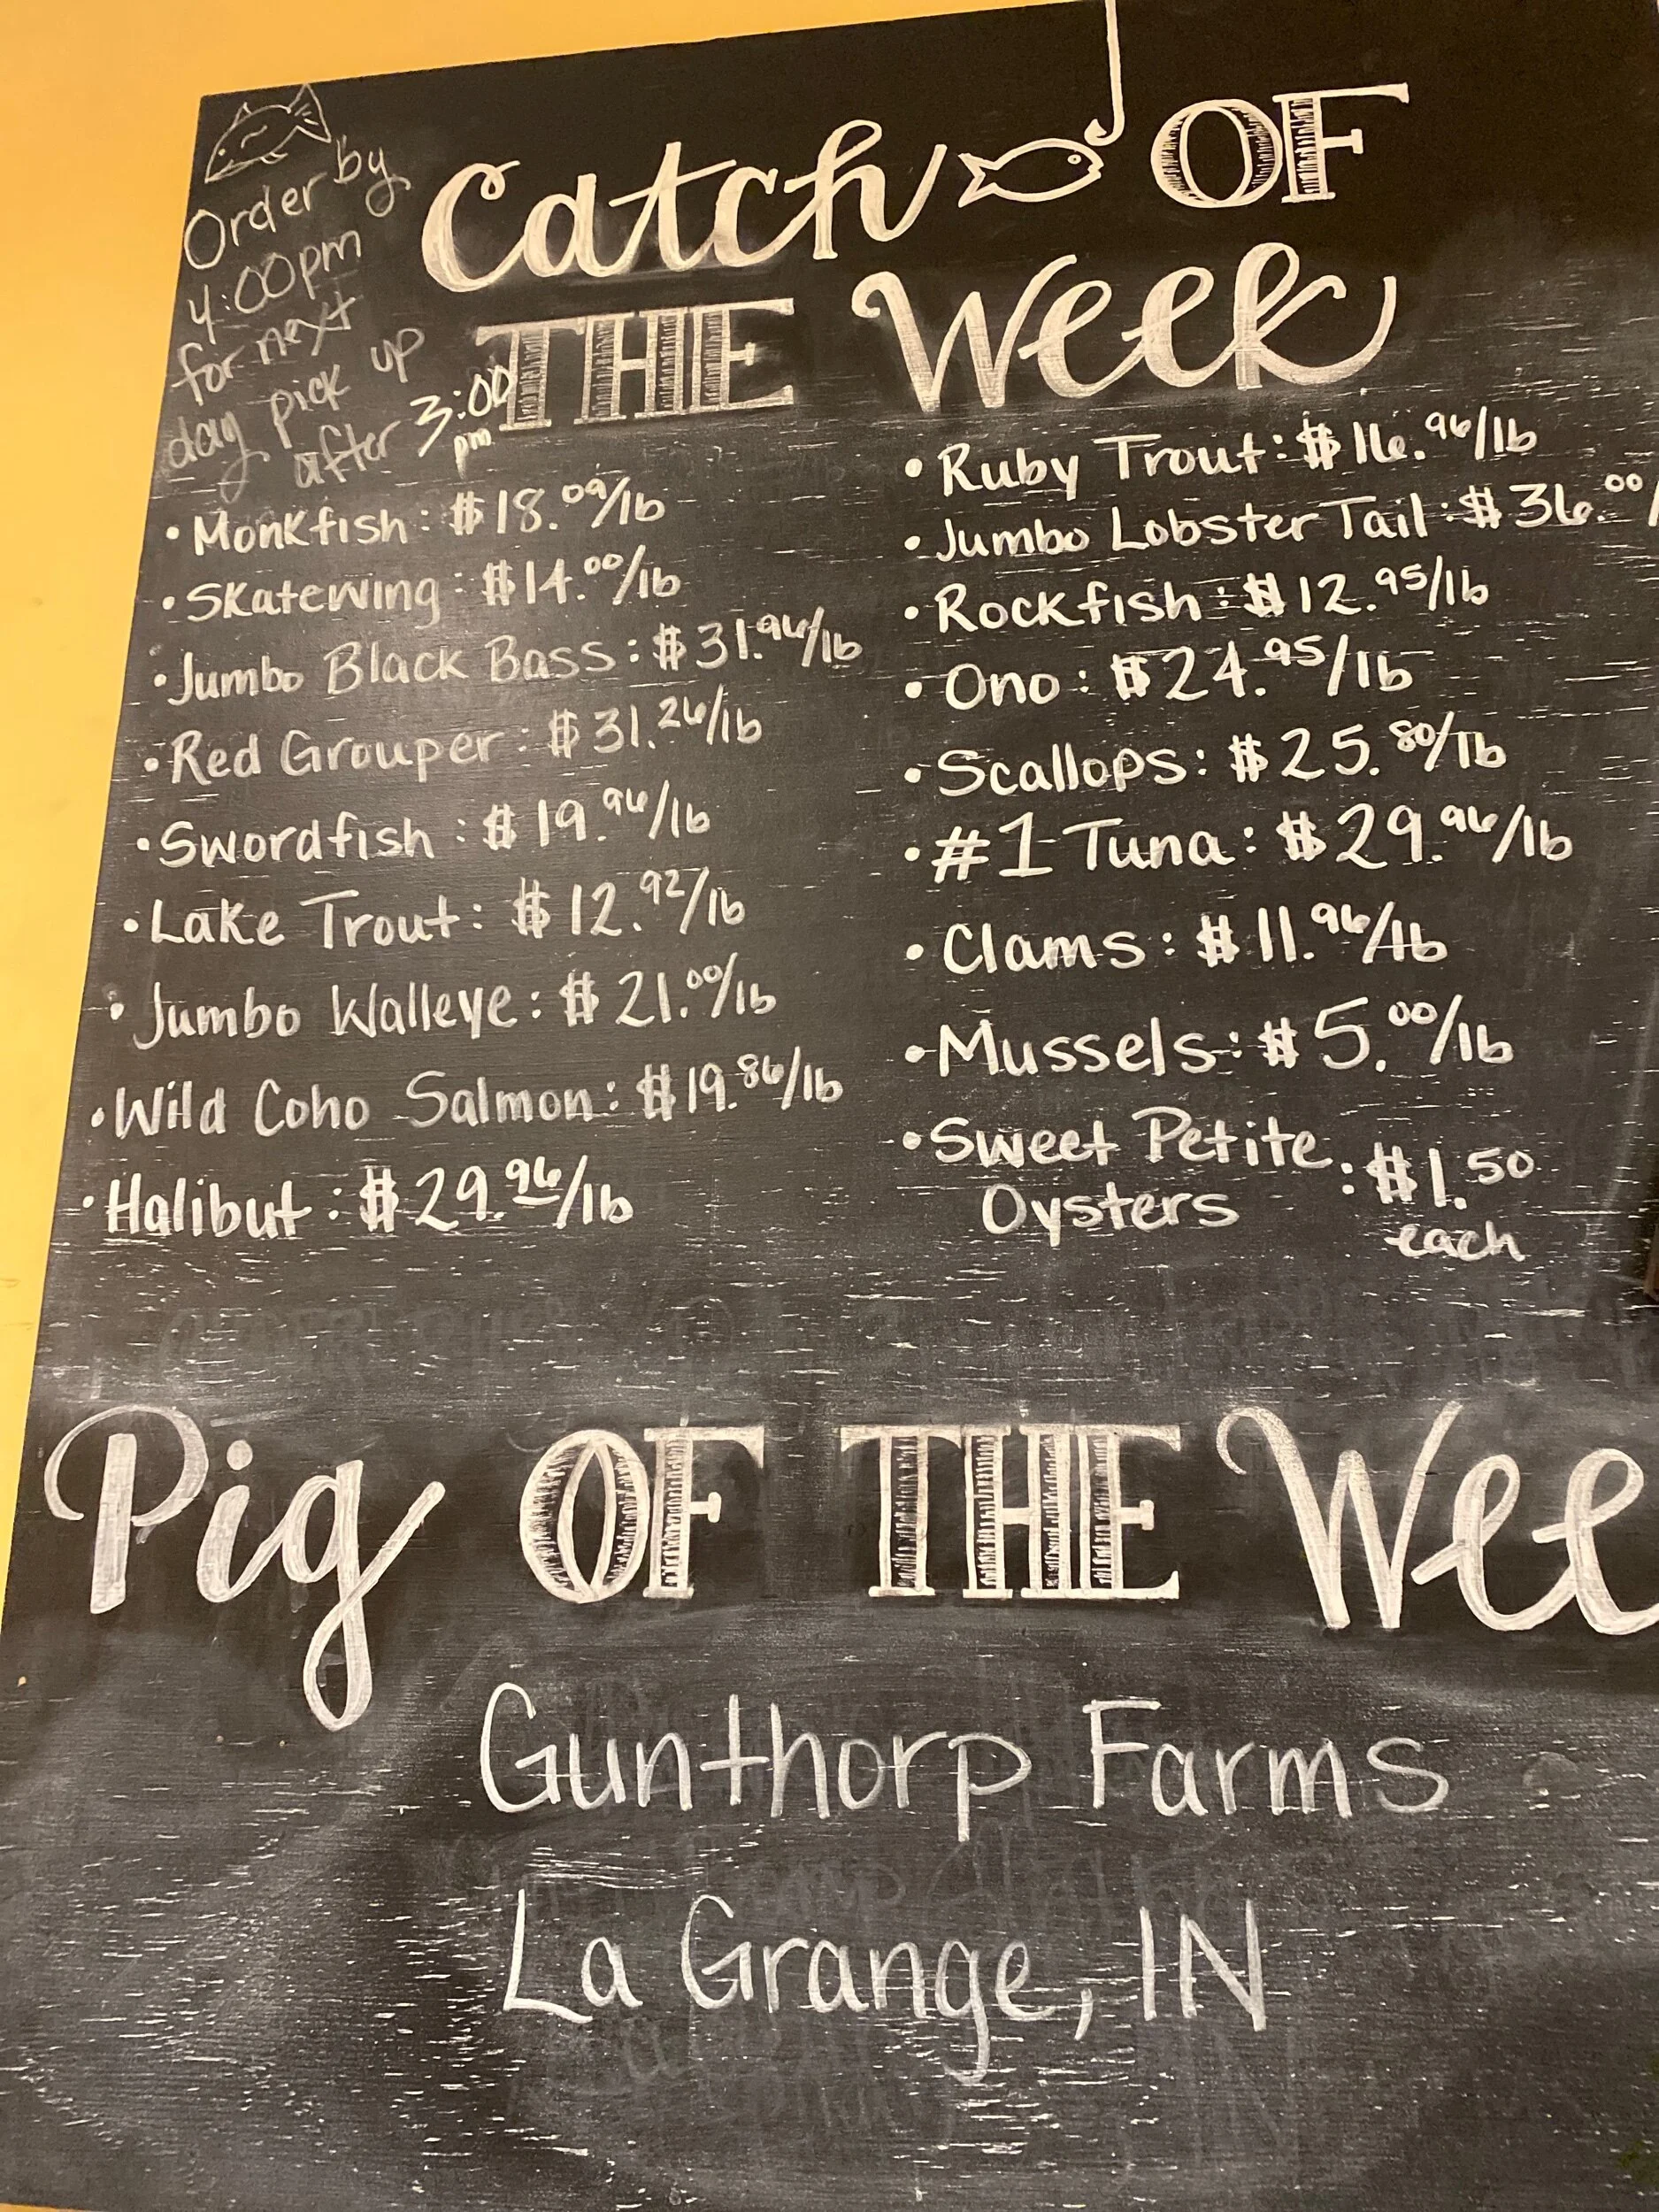 Catch OF
THE Week
Order by
4:00pm
for next
day pick up
after 3:00
pm
• Monkfish: $18.09/lb
• Skatewing: $14.00/lb
• Jumbo Black Bass: $31.96/lb
• Red Grouper: $31.26/lb
• Swordfish: $19.96/lb
• Lake Trout: $12.92/lb
• Jumbo Walleye: $21.00/lb
• Wild Coho Salmon: $19.86/lb
• Halibut: $29.96/lb
• Ruby Trout: $16.96/lb
• Jumbo Lobster Tail: $36.00/
• Rockfish: $12.95/lb
• Ono: $24.95/lb
• Scallops: $25.80/lb
• #1 Tuna: $29.96/lb
• Clams: $11.96/lb
• Mussels: $5.00/lb
• Sweet Petite
Oysters : $1.50
each
Pig OF THE Wee
Gunthorp Farms
La Grange, IN